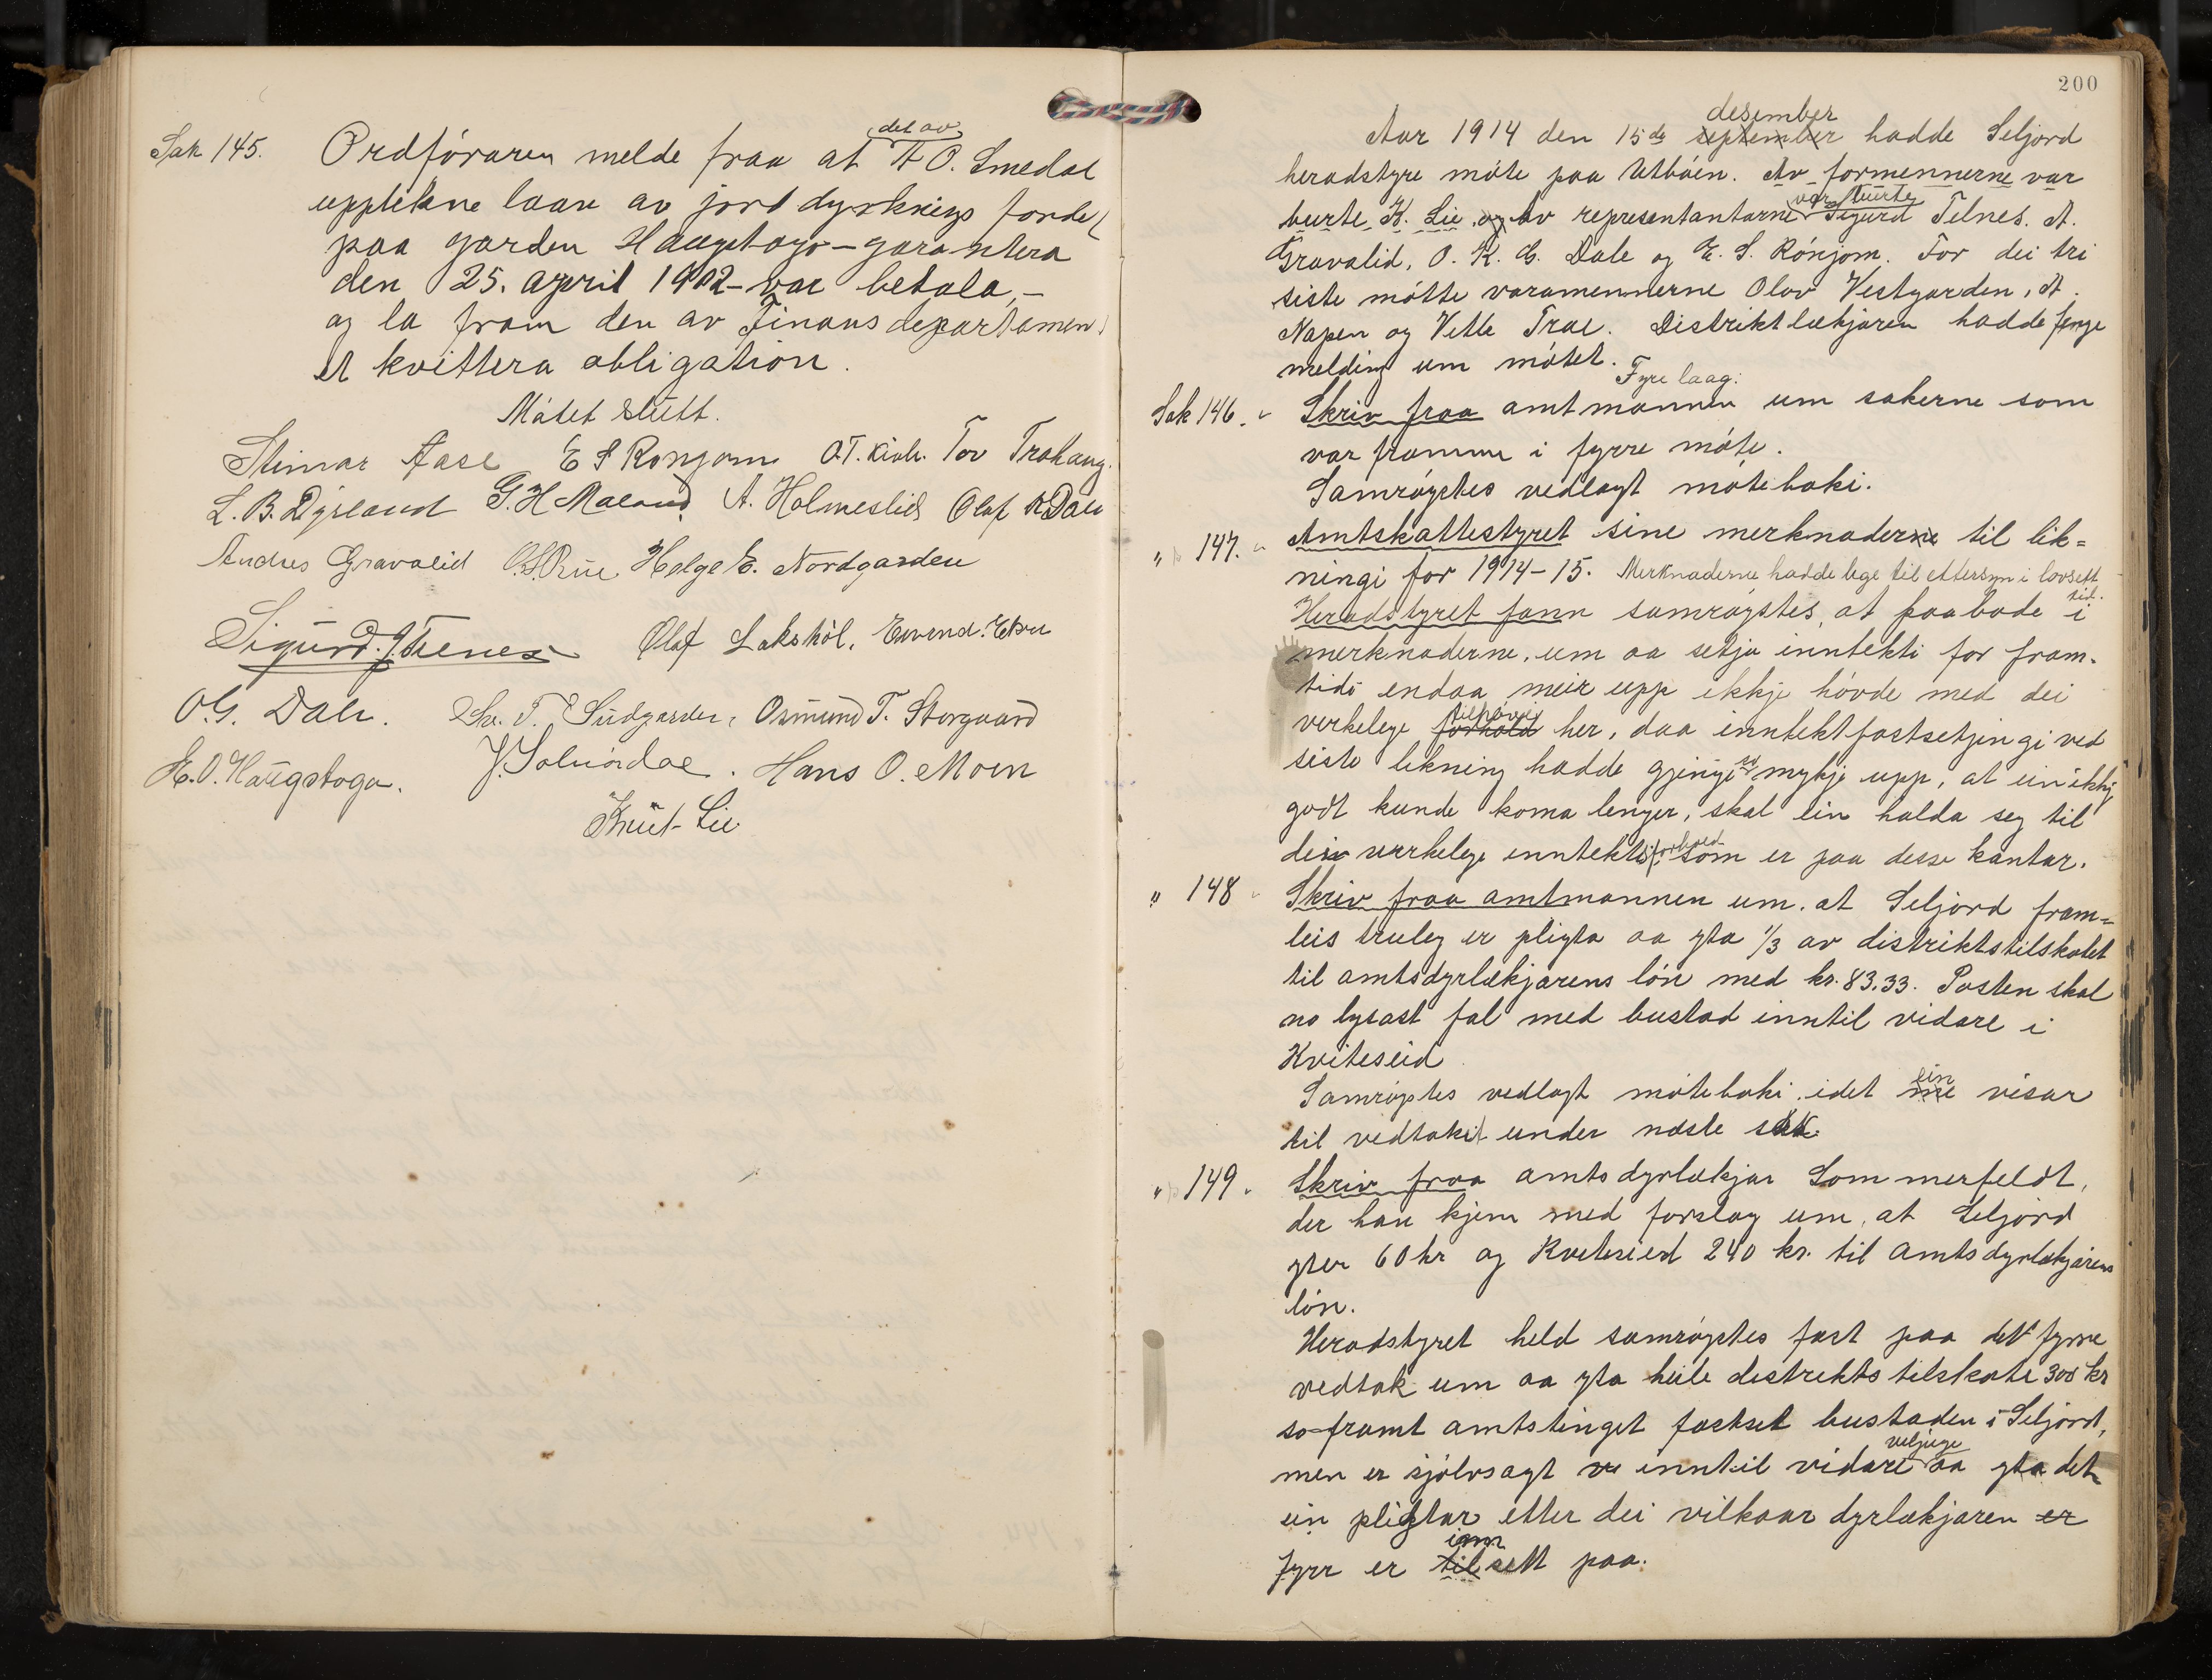 Sak 145. Ordføraren melde fraa at det av A O. Smedal
upptekne laan av jorddyrkningsfondet
paa garden Haugstoga - garantera
den 25. april 1902 - var betala, -
og la fram den av Finansdepartamen-
et kvittera obligation.
Møtet slutt.
Steinar Aase E S Rønjom O.T. Kivle. Tov Trohaug.
L. B. Dyrland G. H Maland, A. Holmeslid Olaf K Dale
Andres Gravalid O. S. Rue Helge E. Nordgarden
Sigurd J. Telnes Olaf Lakshøl, Eivend. Ekre
O. G. Dale. Sv. T. Sudgarden, Osmund T. Storgaard
H. O. Haugstoga. J. Solverdal. Hans O. Moen
Knut Lie
200
Aar 1914 den 15de september desember hadde Seljord
heradstyre møte paa Utbøen. Av formennerne var
burte K. Lie, og av representantarne var burte Sigurd Telnes. A.
Gravalid, O. K. G. Dale og E. S. Rønjom. For dei tri
siste møtte varamennerne Olav Vestgarden, A.
Napen og Vetle Trae. Distriktlækjaren hadde fenge
melding um møtet.
Fyre laag:
Sak 146. Skriv fraa amtmannen um sakerne som
var framme i fyrre møte.
Samrøystes vedlagt møteboki.
" 147. Amtskattestyret sine merknaderne til lik=
ningi for 1914-15. Merknaderne hadde lege til ettersyn i lovsett tid.
Heradstyret fann samrøystes, at paabode i
merknaderne, um aa setja inntekti for fram-
tidi endaa meir upp ikkje høvde med dei
verkelege forhold tilhøvi her, daa inntektfastsetjingi ved
siste likning hadde gjenge so mykje upp, at ein ikkje
godt kunde koma lenger, skal ein halda seg til
dei verkelege inntektsforhold som er paa desse kantar.
" 148 Skriv fraa amtmannen um, at Seljord fram=
leis truleg er pligta aa yta 1/3 av distriktstilskotet
til amtsdyrlækjarens løn med kr. 83.33. Posten skal
no lysast fal med bustad inntil vidare i
Kviteseid
Samrøystes vedlagt møteboki, idet me ein visar
til vedtaket under næste sak.
" 149. Skriv fraa amtsdyrlækjar Sommerfeldt,
der han kjem med forslag um, at Seljord
yter 60 kr og Kviteseid 240 kr. til amtsdyrlækjarens
løn.
Heradstyret held samrøystes fast paa det fyrre
vedtak um aa yta heile distriktstilskote 300 kr
so-framt amtstinget fastset bustaden i Seljord,
men er sjølvsagt inntil vidare veljuge aa yta det
ein pligtar etter dei vilkaar dyrlækjaren er
fyrr er til innsett paa.